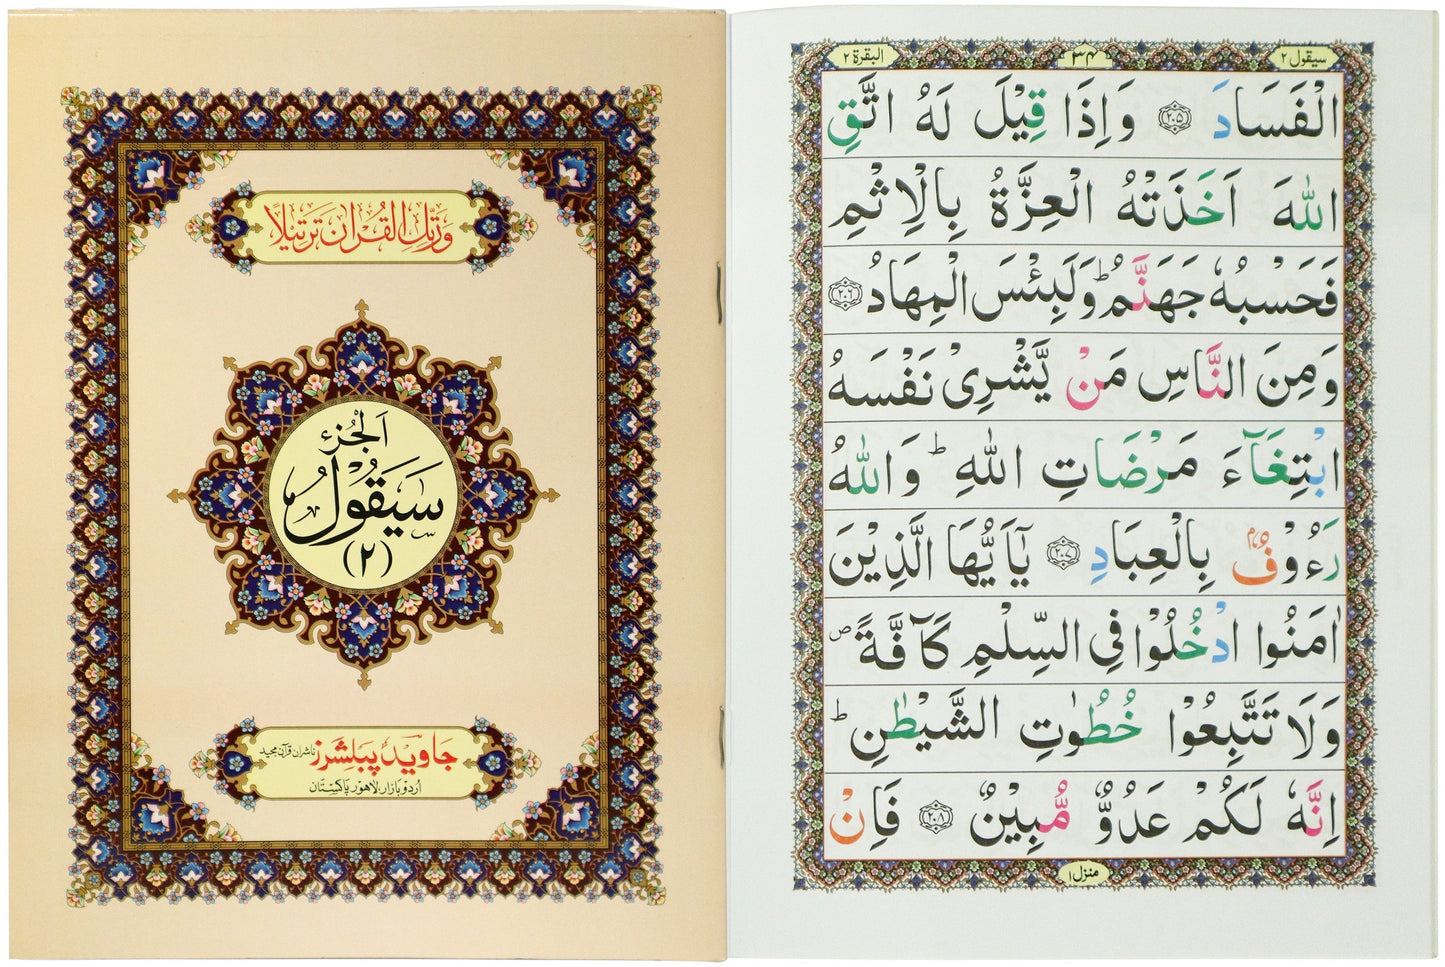 وَرَتِّلِ الْقُرْاٰنَ تَرْتِيْلًا
اَلْجُزْءُ
سَيَقُوْلُ
(۲)
جاوید پبلشرز ناشران قرآن مجید
اُردو بازار، لاہور پاکستان
سیقول ۲ ۳۴ البقرة ۲
الْفَسَادَ ۝۲۰۵ وَاِذَا قِيْلَ لَهُ اتَّقِ
اللّٰهَ اَخَذَتْهُ الْعِزَّةُ بِالْاِثْمِ
فَحَسْبُهٗ جَهَنَّمُ ؕ وَلَبِئْسَ الْمِهَادُ ۝۲۰۶
وَمِنَ النَّاسِ مَنْ يَّشْرِىْ نَفْسَهُ
ابْتِغَآءَ مَرْضَاتِ اللّٰهِ ؕ وَاللّٰهُ
رَءُوْفٌۢ بِالْعِبَادِ ۝۲۰۷ يٰٓاَيُّهَا الَّذِيْنَ
اٰمَنُوا ادْخُلُوْا فِى السِّلْمِ كَآفَّةً ۪
وَلَا تَتَّبِعُوْا خُطُوٰتِ الشَّيْطٰنِ ؕ
اِنَّهٗ لَكُمْ عَدُوٌّ مُّبِيْنٌ ۝۲۰۸ فَاِنْ
منزل ۱